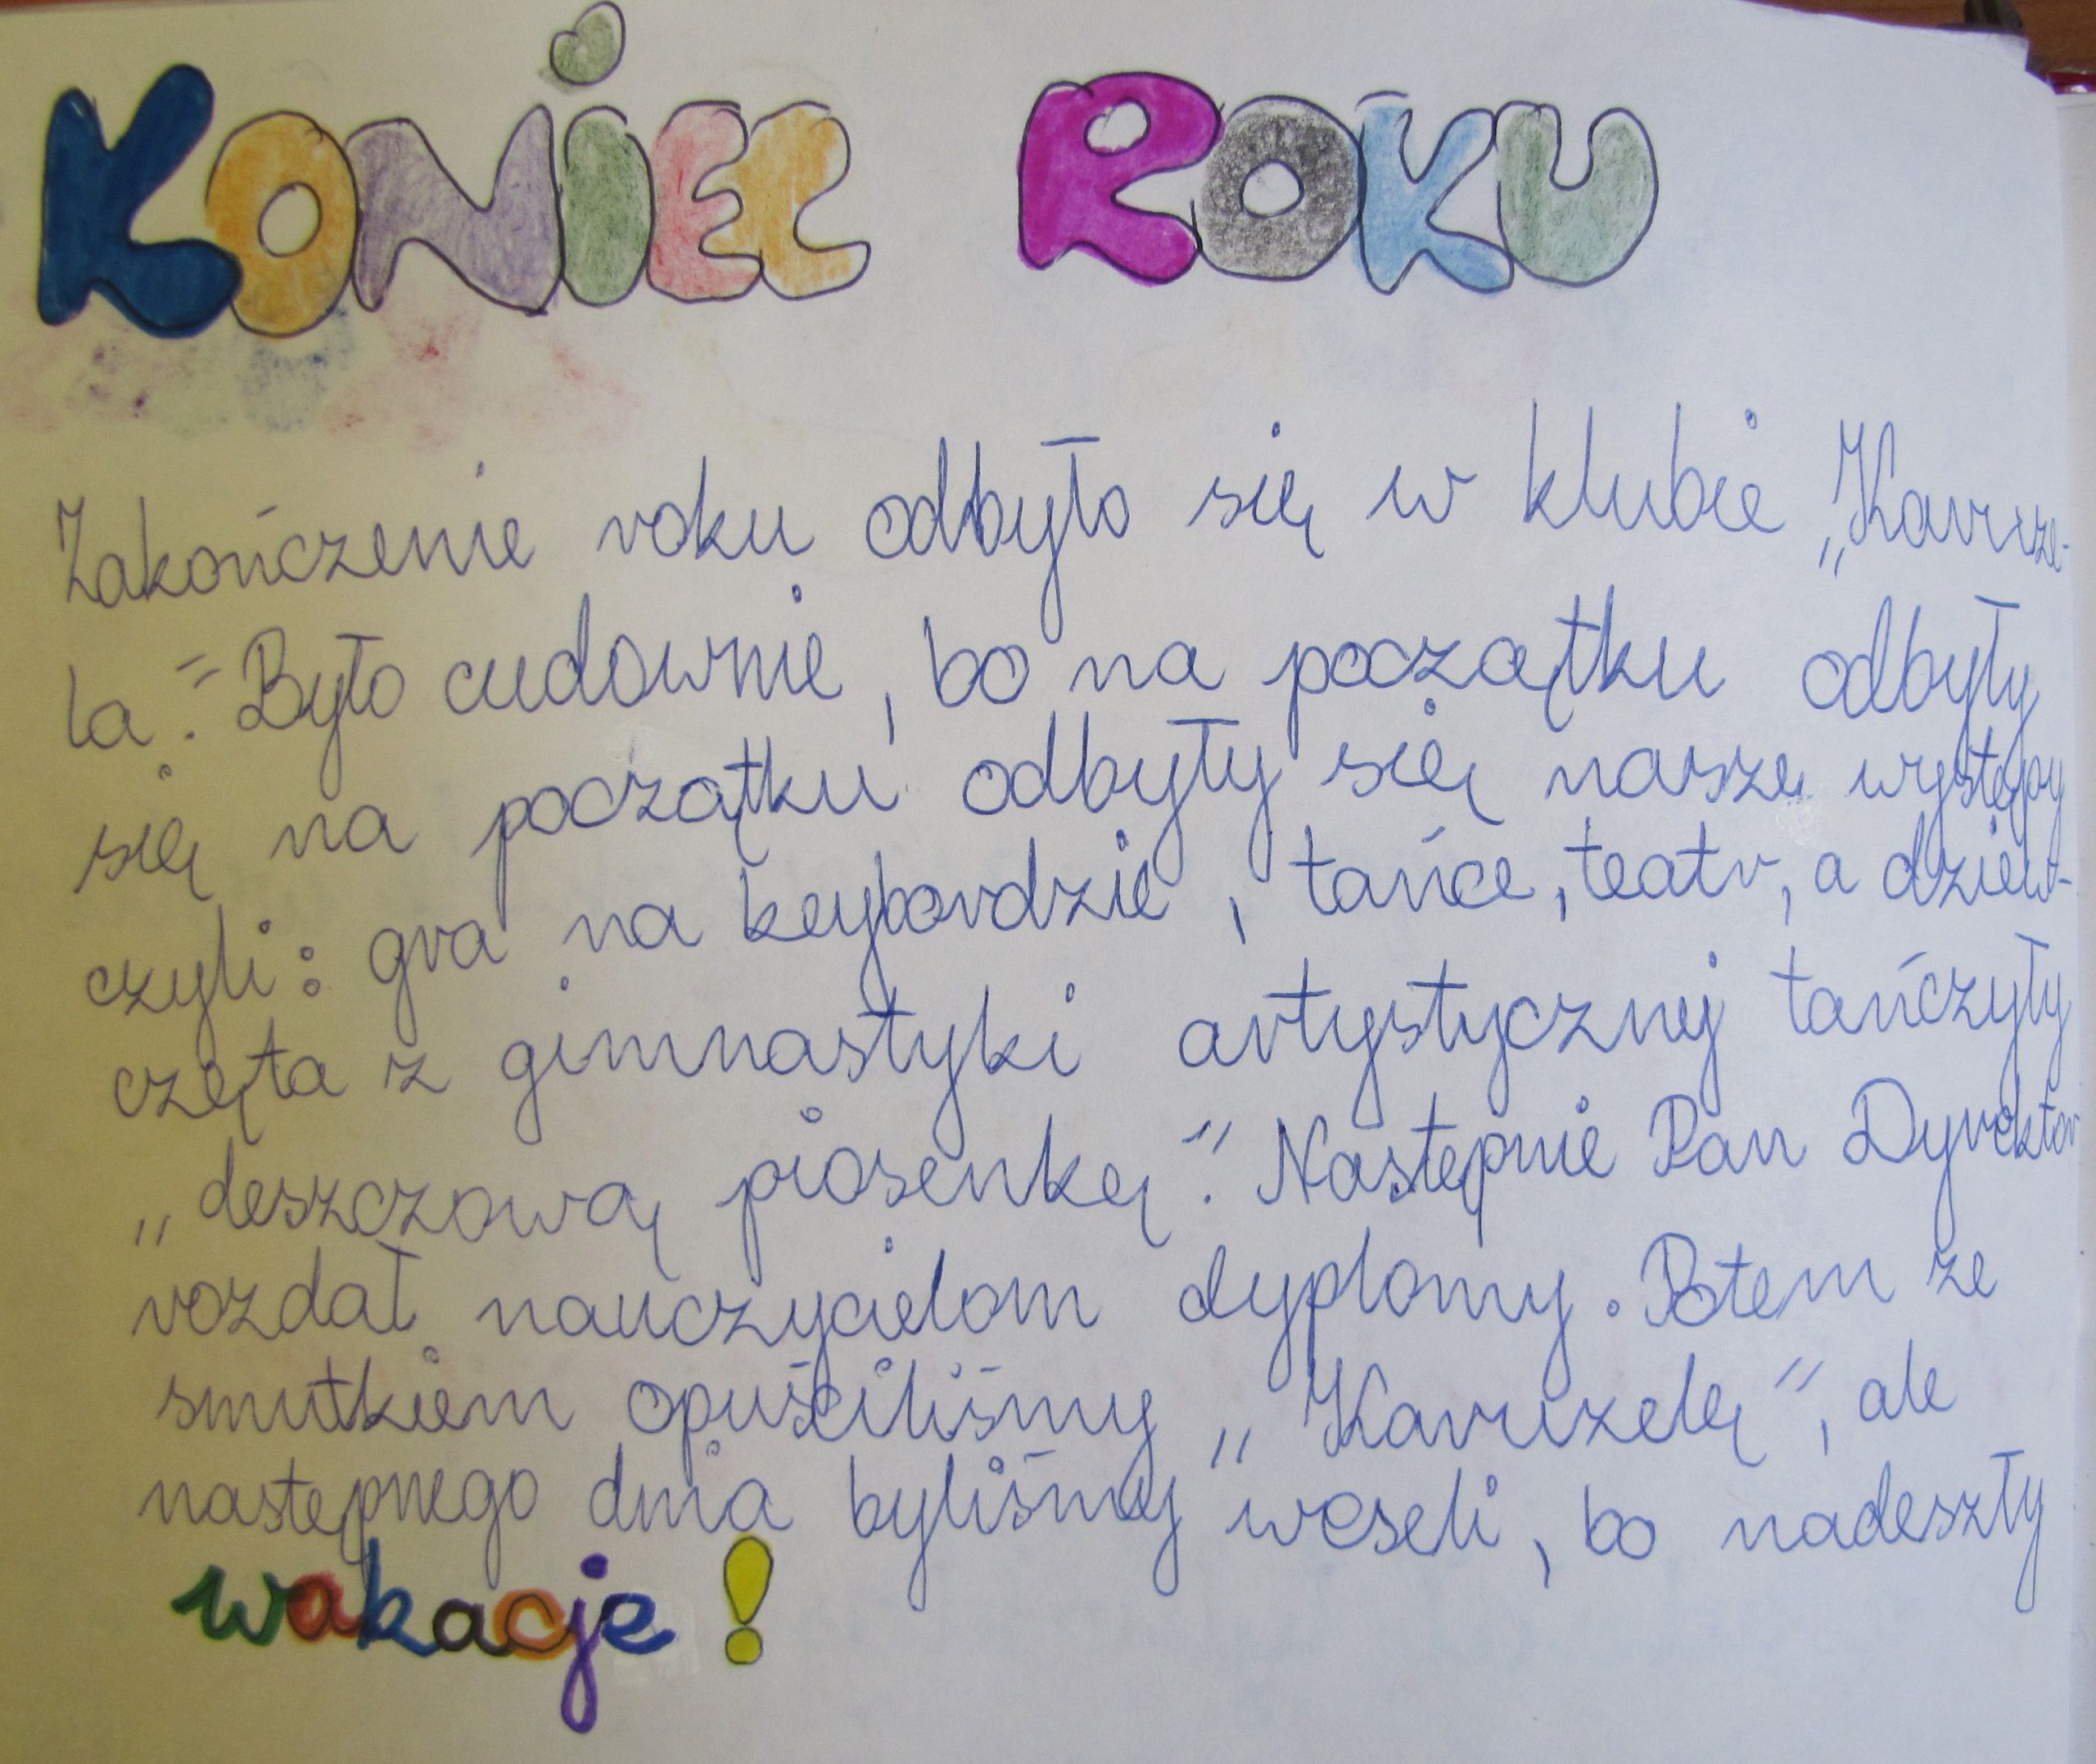 KONiEC ROKU
Zakończenie roku odbyło się w klubie „Karuze-
la". Było cudownie, bo na początku odbyły
się na początku odbyły się nasze występy
czyli: gra na keybordzie, tańce, teatr, a dziew-
częta z gimnastyki artystycznej tańczyły
„deszczową piosenkę". Następnie Pan Dyrektor
rozdał nauczycielom dyplomy. Potem ze
smutkiem opuściliśmy „Karuzelę", ale
następnego dnia byliśmy weseli, bo nadeszły
wakacje!